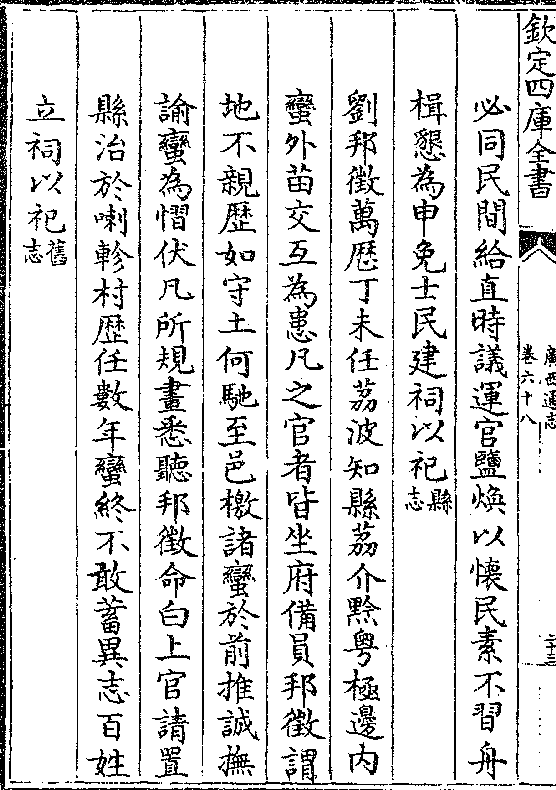 欽定四庫全書
廣西通志
卷六十八
二十三
必同民間給直時議運官鹽煥以懷民素不習舟
楫懇為申免士民建祠以祀縣志
劉邦徵萬歷丁未任荔波知縣荔介黔粵極邊内
蠻外苗交互為患凡之官者皆坐府備員邦徵謂
地不親歴如守土何馳至邑檄諸蠻於前推誠撫
諭蠻為慴伏凡所規畫悉聽邦徵命白上官請置
縣治於喇軫村歴任數年蠻終不敢蓄異志百姓
立祠以祀舊志